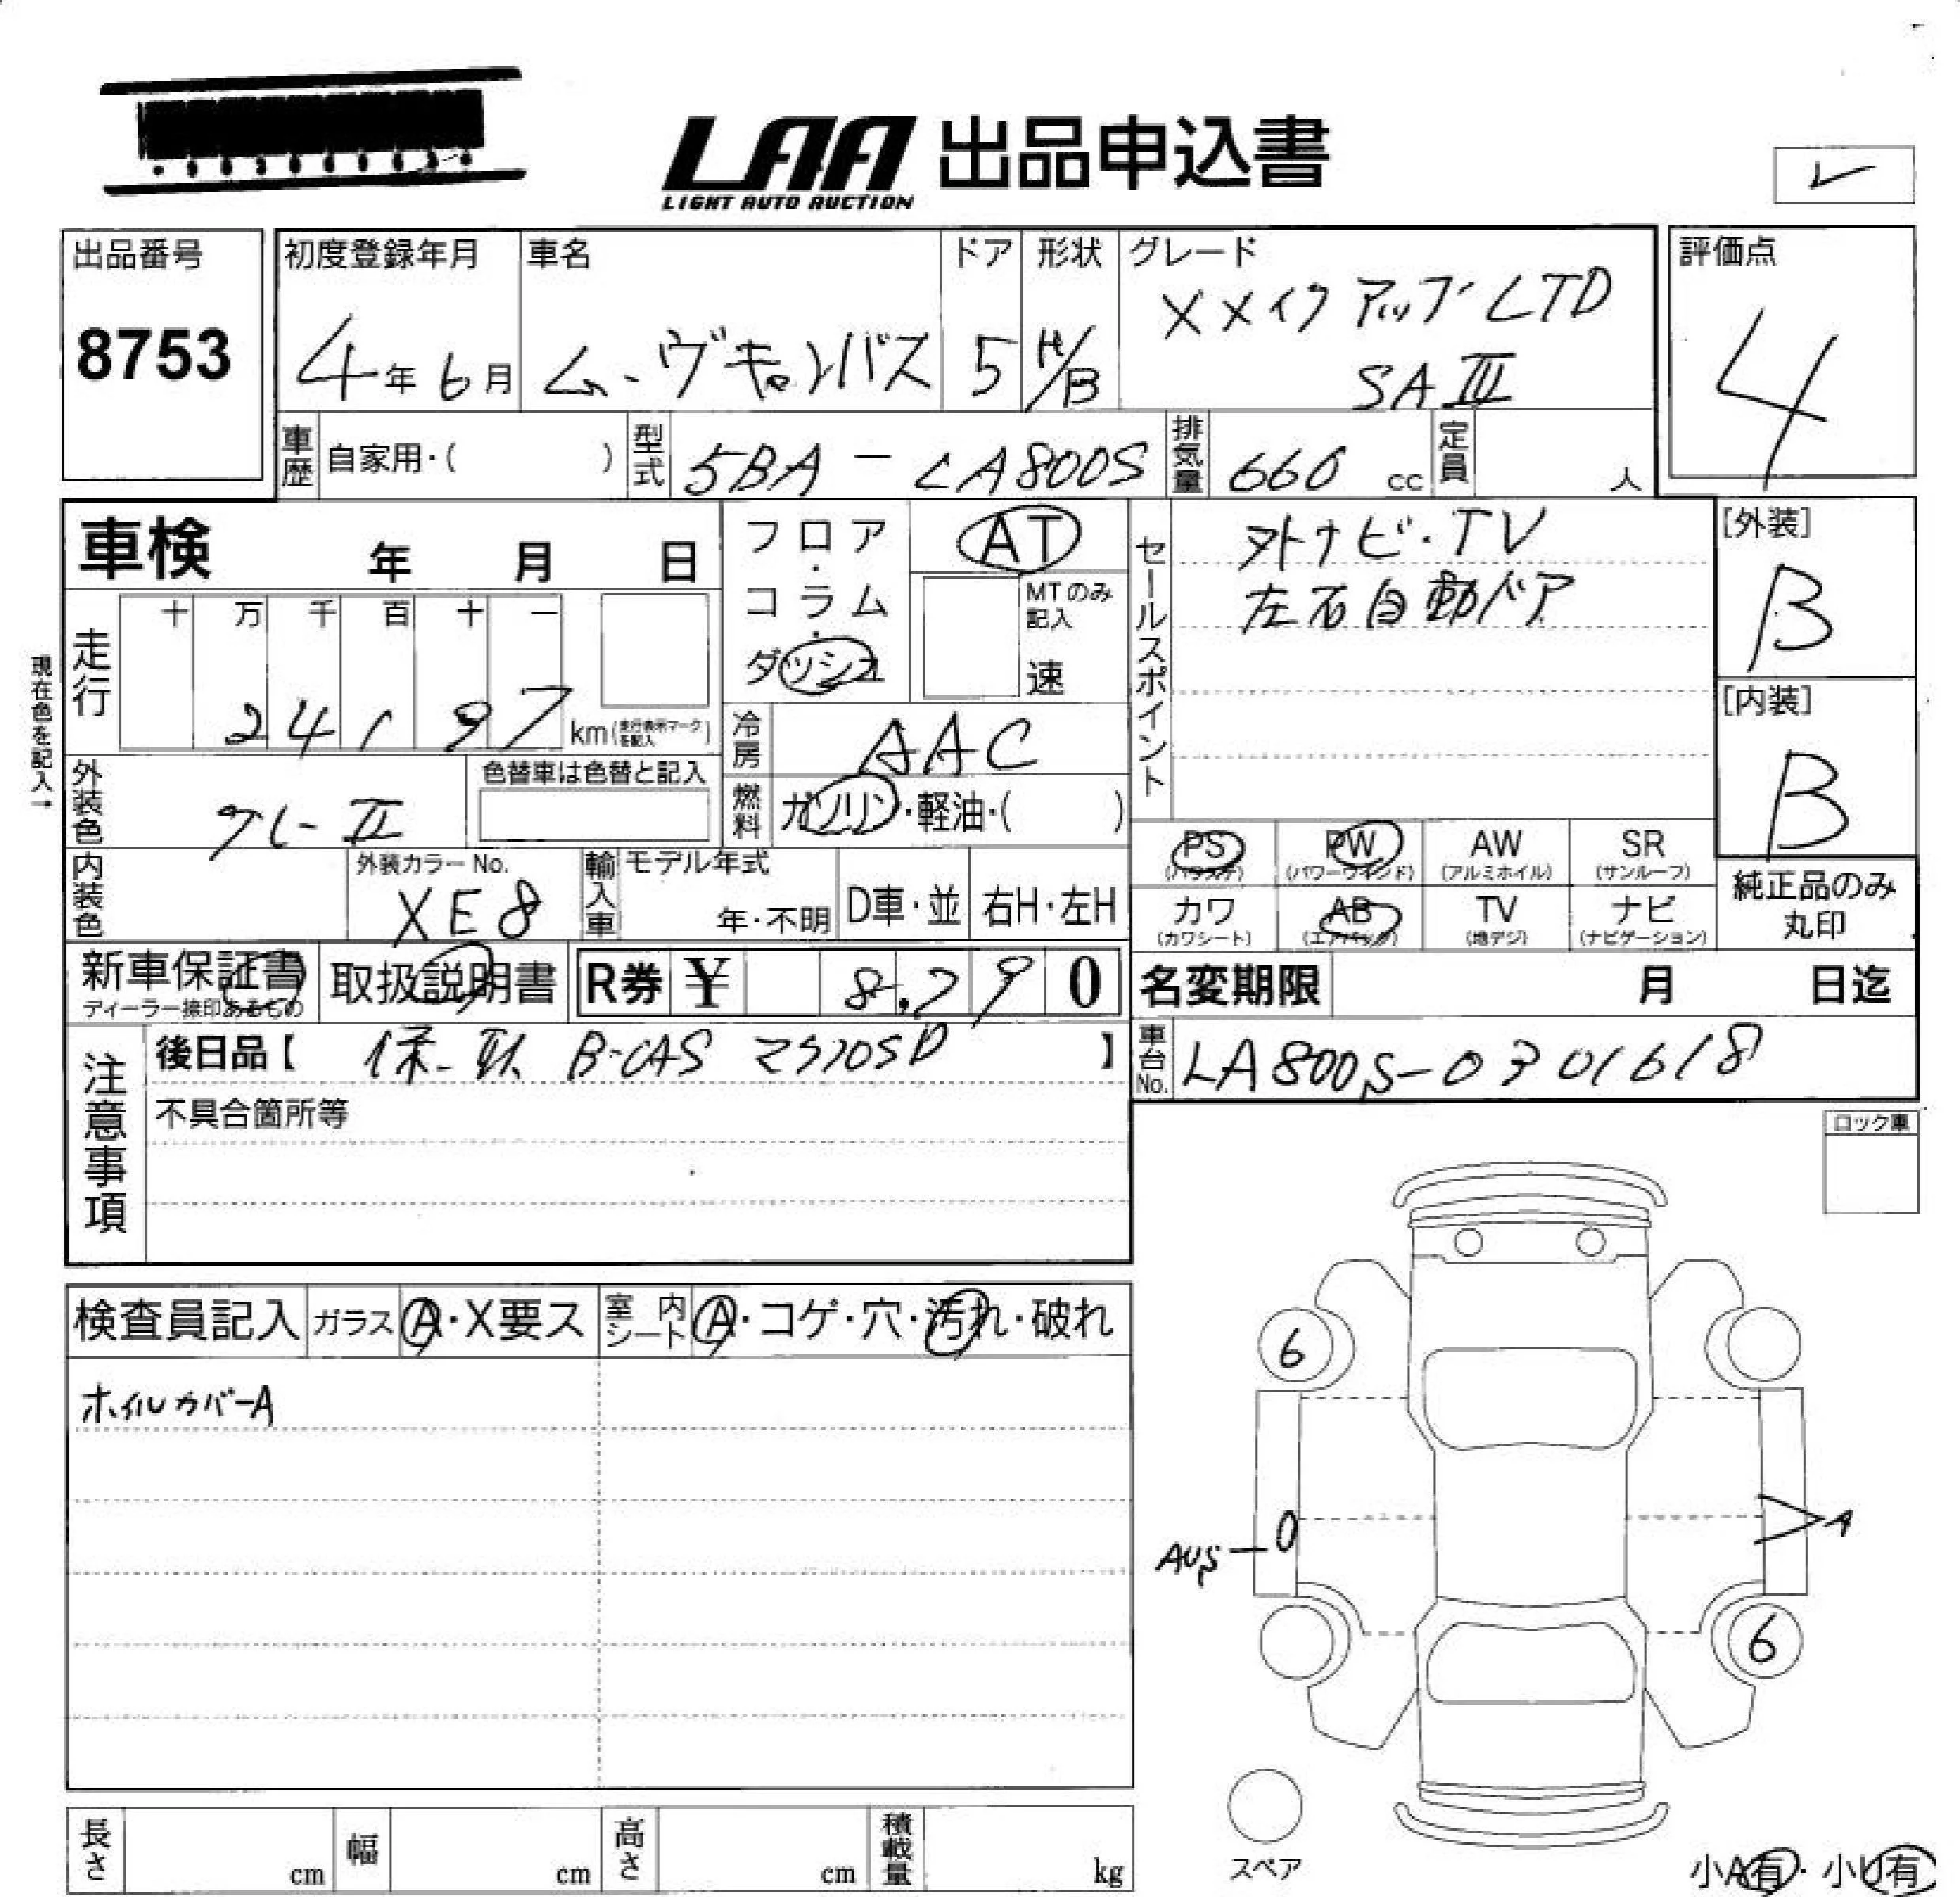 LAA 出品申込書
LIGHT AUTO AUCTION
出品番号
8753
初度登録年月
4年6月
車名
ムーヴキャンバス
ドア
5
形状
H/B
グレード
XメイクアップLTD
SAⅢ
評価点
4
車歴 自家用・( )
型式 5BA-LA800S
排気量 660 cc
定員 人
車検 年 月 日
フロア・コラム・ダッシュ
AT
MTのみ記入
速
セールスポイント
外ナビ・TV
左右自動ドア
[外装]
B
[内装]
B
現在色を記入→
走行
十 万 千 百 十 一
24197
km(走行表示マークを記入)
冷房 AAC
外装色 グレーⅡ
色替車は色替と記入
燃料 ガソリン・軽油・( )
PS
(パワステ)
PW
(パワーウインド)
AW
(アルミホイル)
SR
(サンルーフ)
内装色
外装カラーNo.
XE8
輸入車
モデル年式
年・不明
D車・並
右H・左H
カワ
(カワシート)
AB
(エアバッグ)
TV
(地デジ)
ナビ
(ナビゲーション)
純正品のみ
丸印
新車保証書
ディーラー捺印あるもの
取扱説明書
R券 ¥ 8,290
名変期限 月 日迄
注意事項
後日品【 保-取 B-CAS マSD 】
車台No. LA800S-0301618
不具合箇所等
ロック車
検査員記入
ガラス A・X要ス
室内シート A・コゲ・穴・汚れ・破れ
ホイルカバーA
6
A
6
スペア
小A有・小U有
長さ cm
幅 cm
高さ cm
積載量 kg